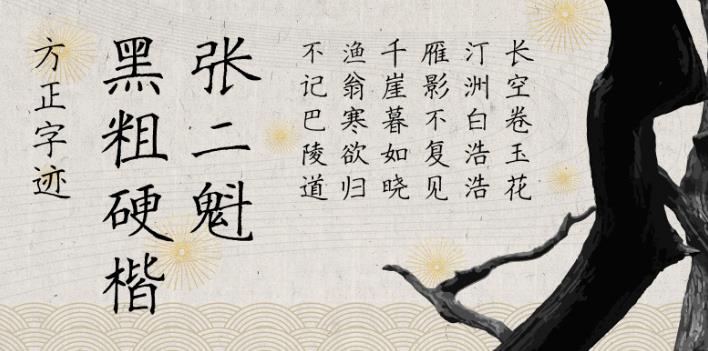 长空卷玉花
汀洲白浩浩
雁影不复见
千崖暮如晓
渔翁寒欲归
不记巴陵道
张二魁
黑粗硬楷
方正字迹